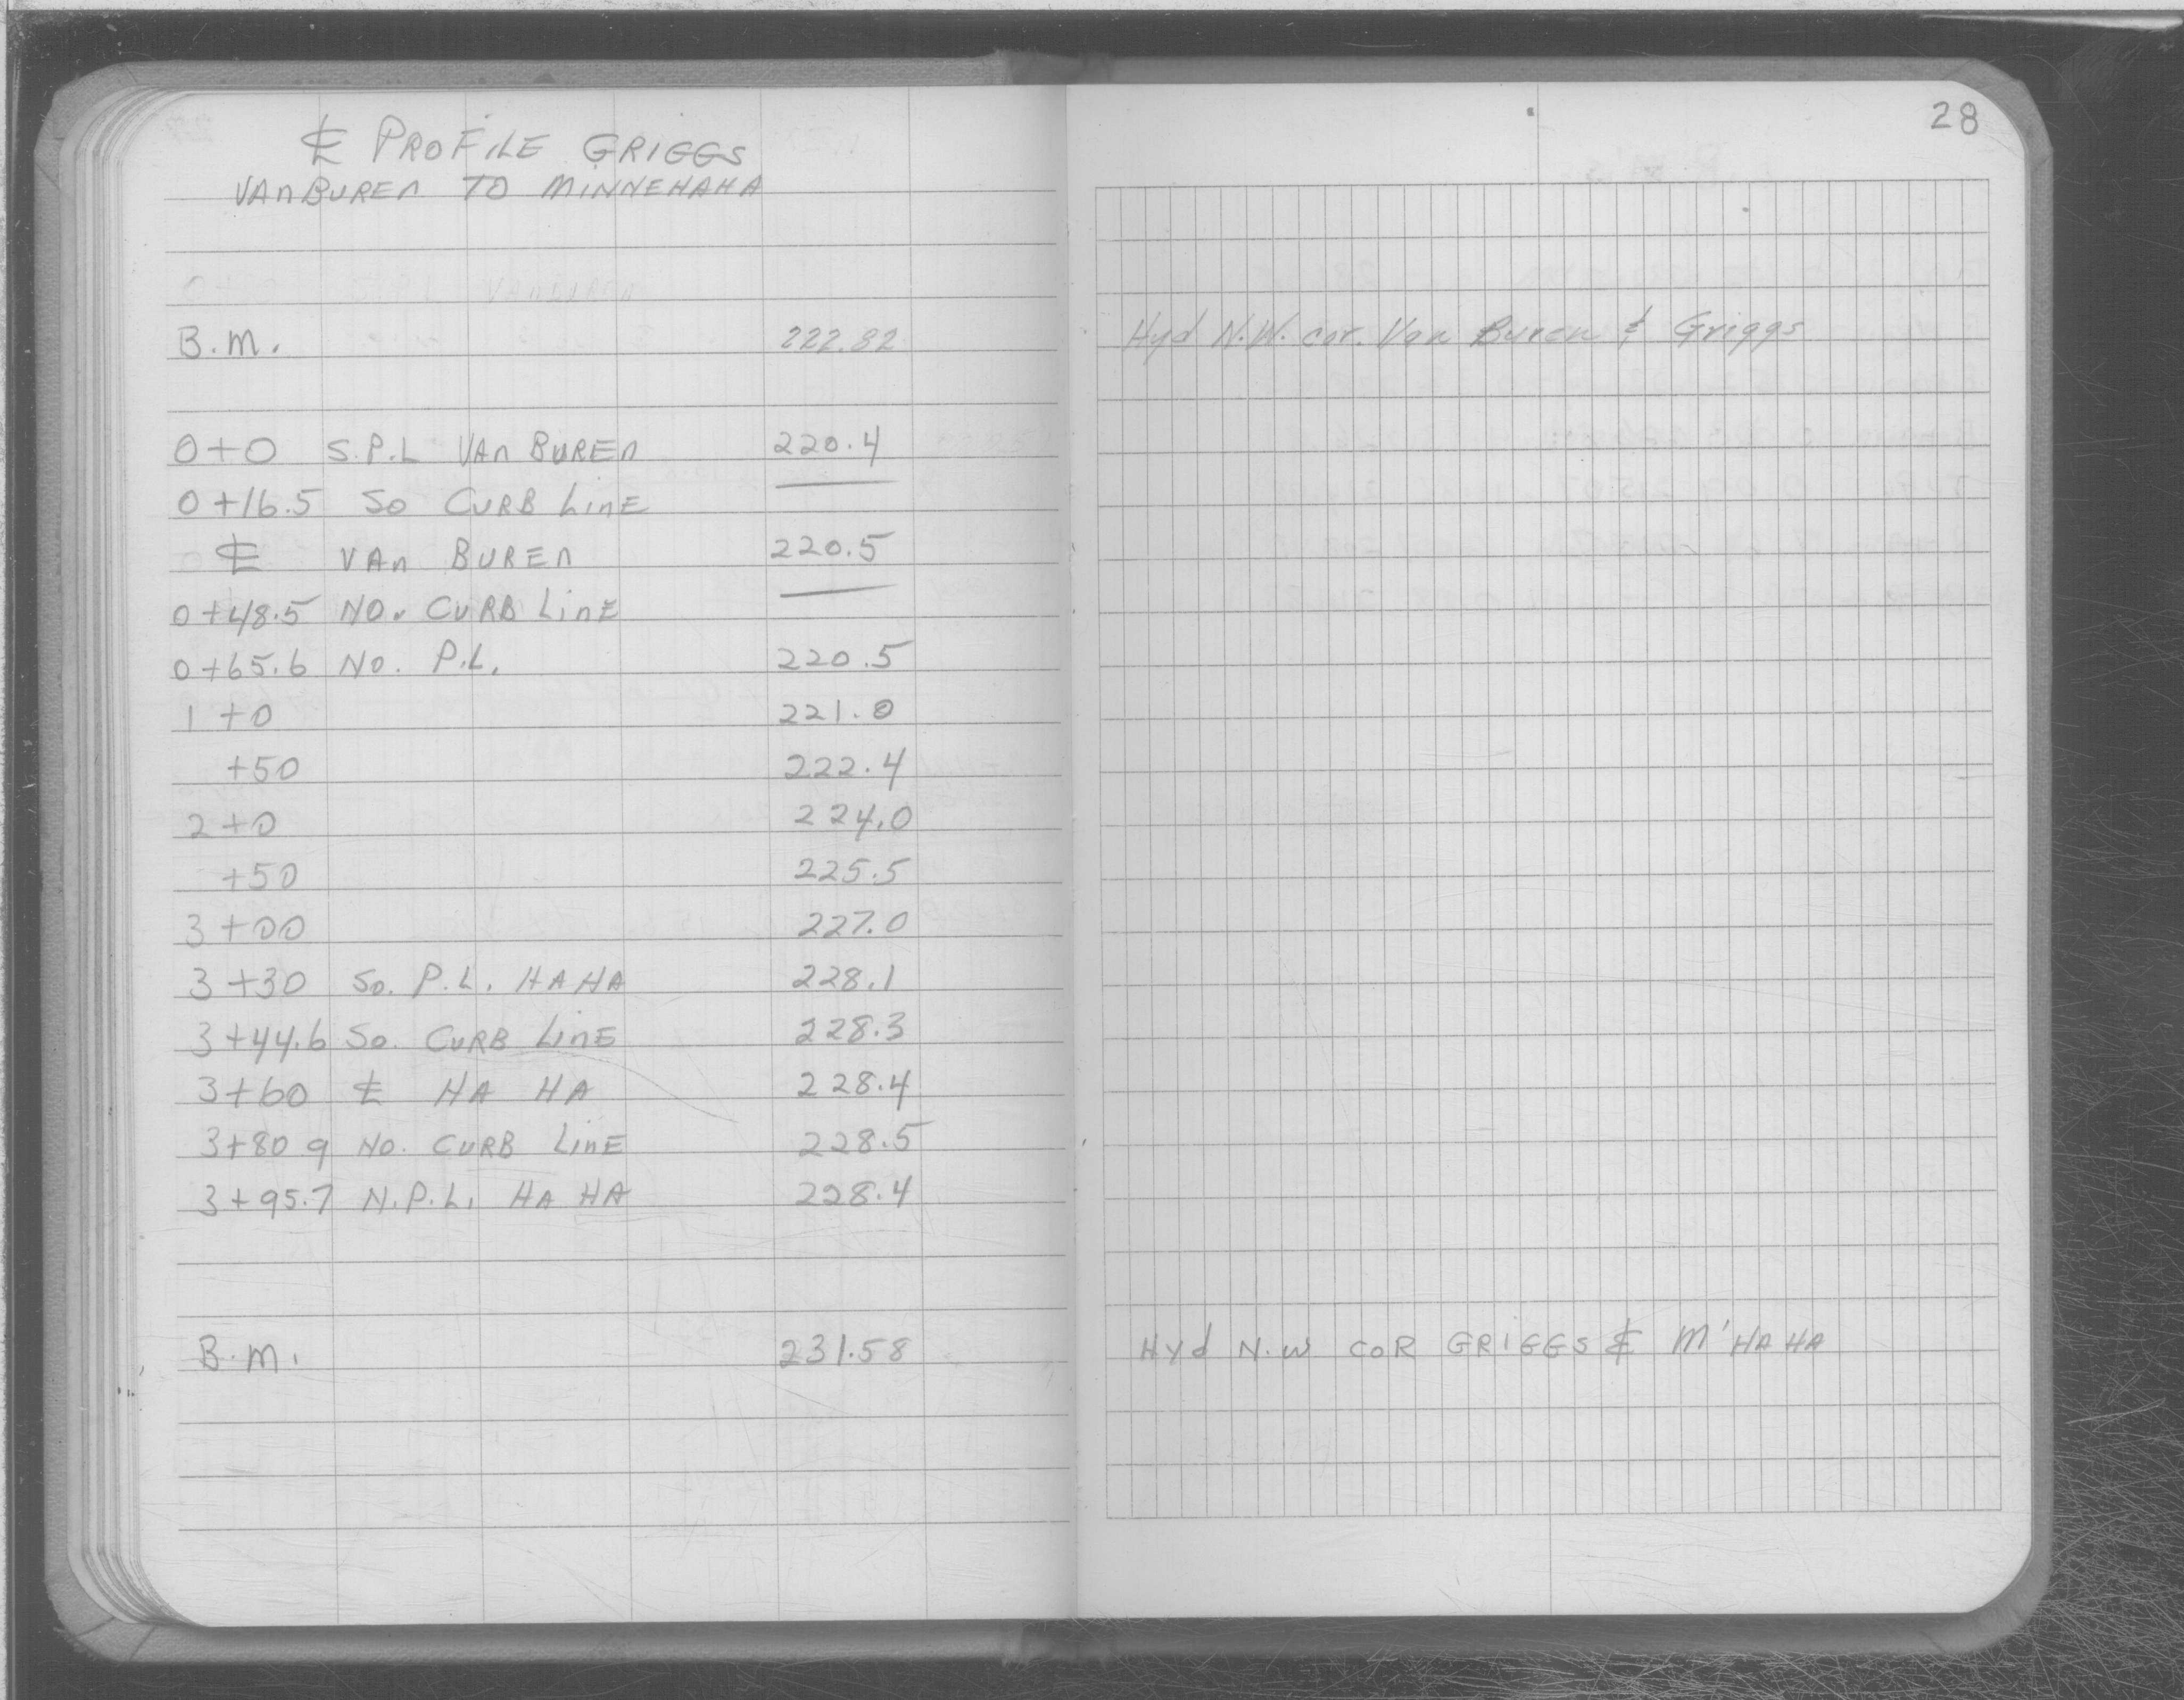 ℄ PROFILE GRIGGS
VAN BUREN TO MINNEHAHA
28
B.M. 222.82 Hyd N.W. cor. Van Buren & Griggs
0+0 S.P.L VAN BUREN 220.4
0+16.5 SO CURB LINE —
℄ VAN BUREN 220.5
0+48.5 NO. CURB LINE —
0+65.6 NO. P.L. 220.5
1+0 221.0
+50 222.4
2+0 224.0
+50 225.5
3+00 227.0
3+30 So. P.L. HAHA 228.1
3+44.6 So. CURB LINE 228.3
3+60 ℄ HA HA 228.4
3+80 9 NO. CURB LINE 228.5
3+95.7 N.P.L. HA HA 228.4
B.M. 231.58 Hyd N.W COR GRIGGS & M'HAHA